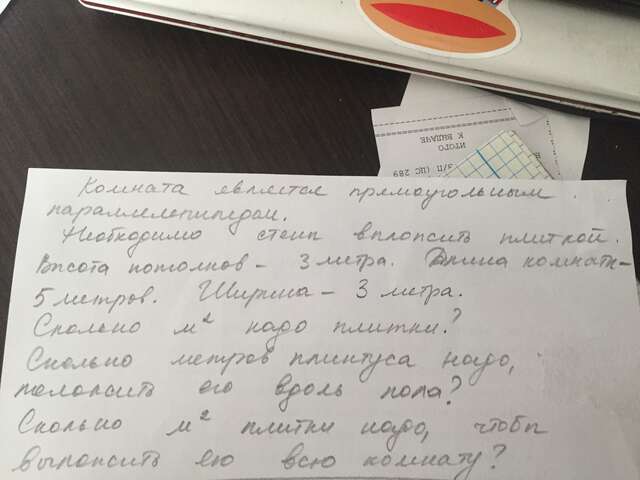 Комната является прямоугольным
параллелепипедом.
Необходимо стены выложить плиткой.
Высота потолков - 3 метра. Длина комнаты -
5 метров. Ширина - 3 метра.
Сколько м² надо плитки?
Сколько метров плинтуса надо,
положить его вдоль пола?
Сколько м² плитки надо, чтобы
выложить ею всю комнату?
К ВЫДАЧЕ
ИТОГО
З/П (ПС 289